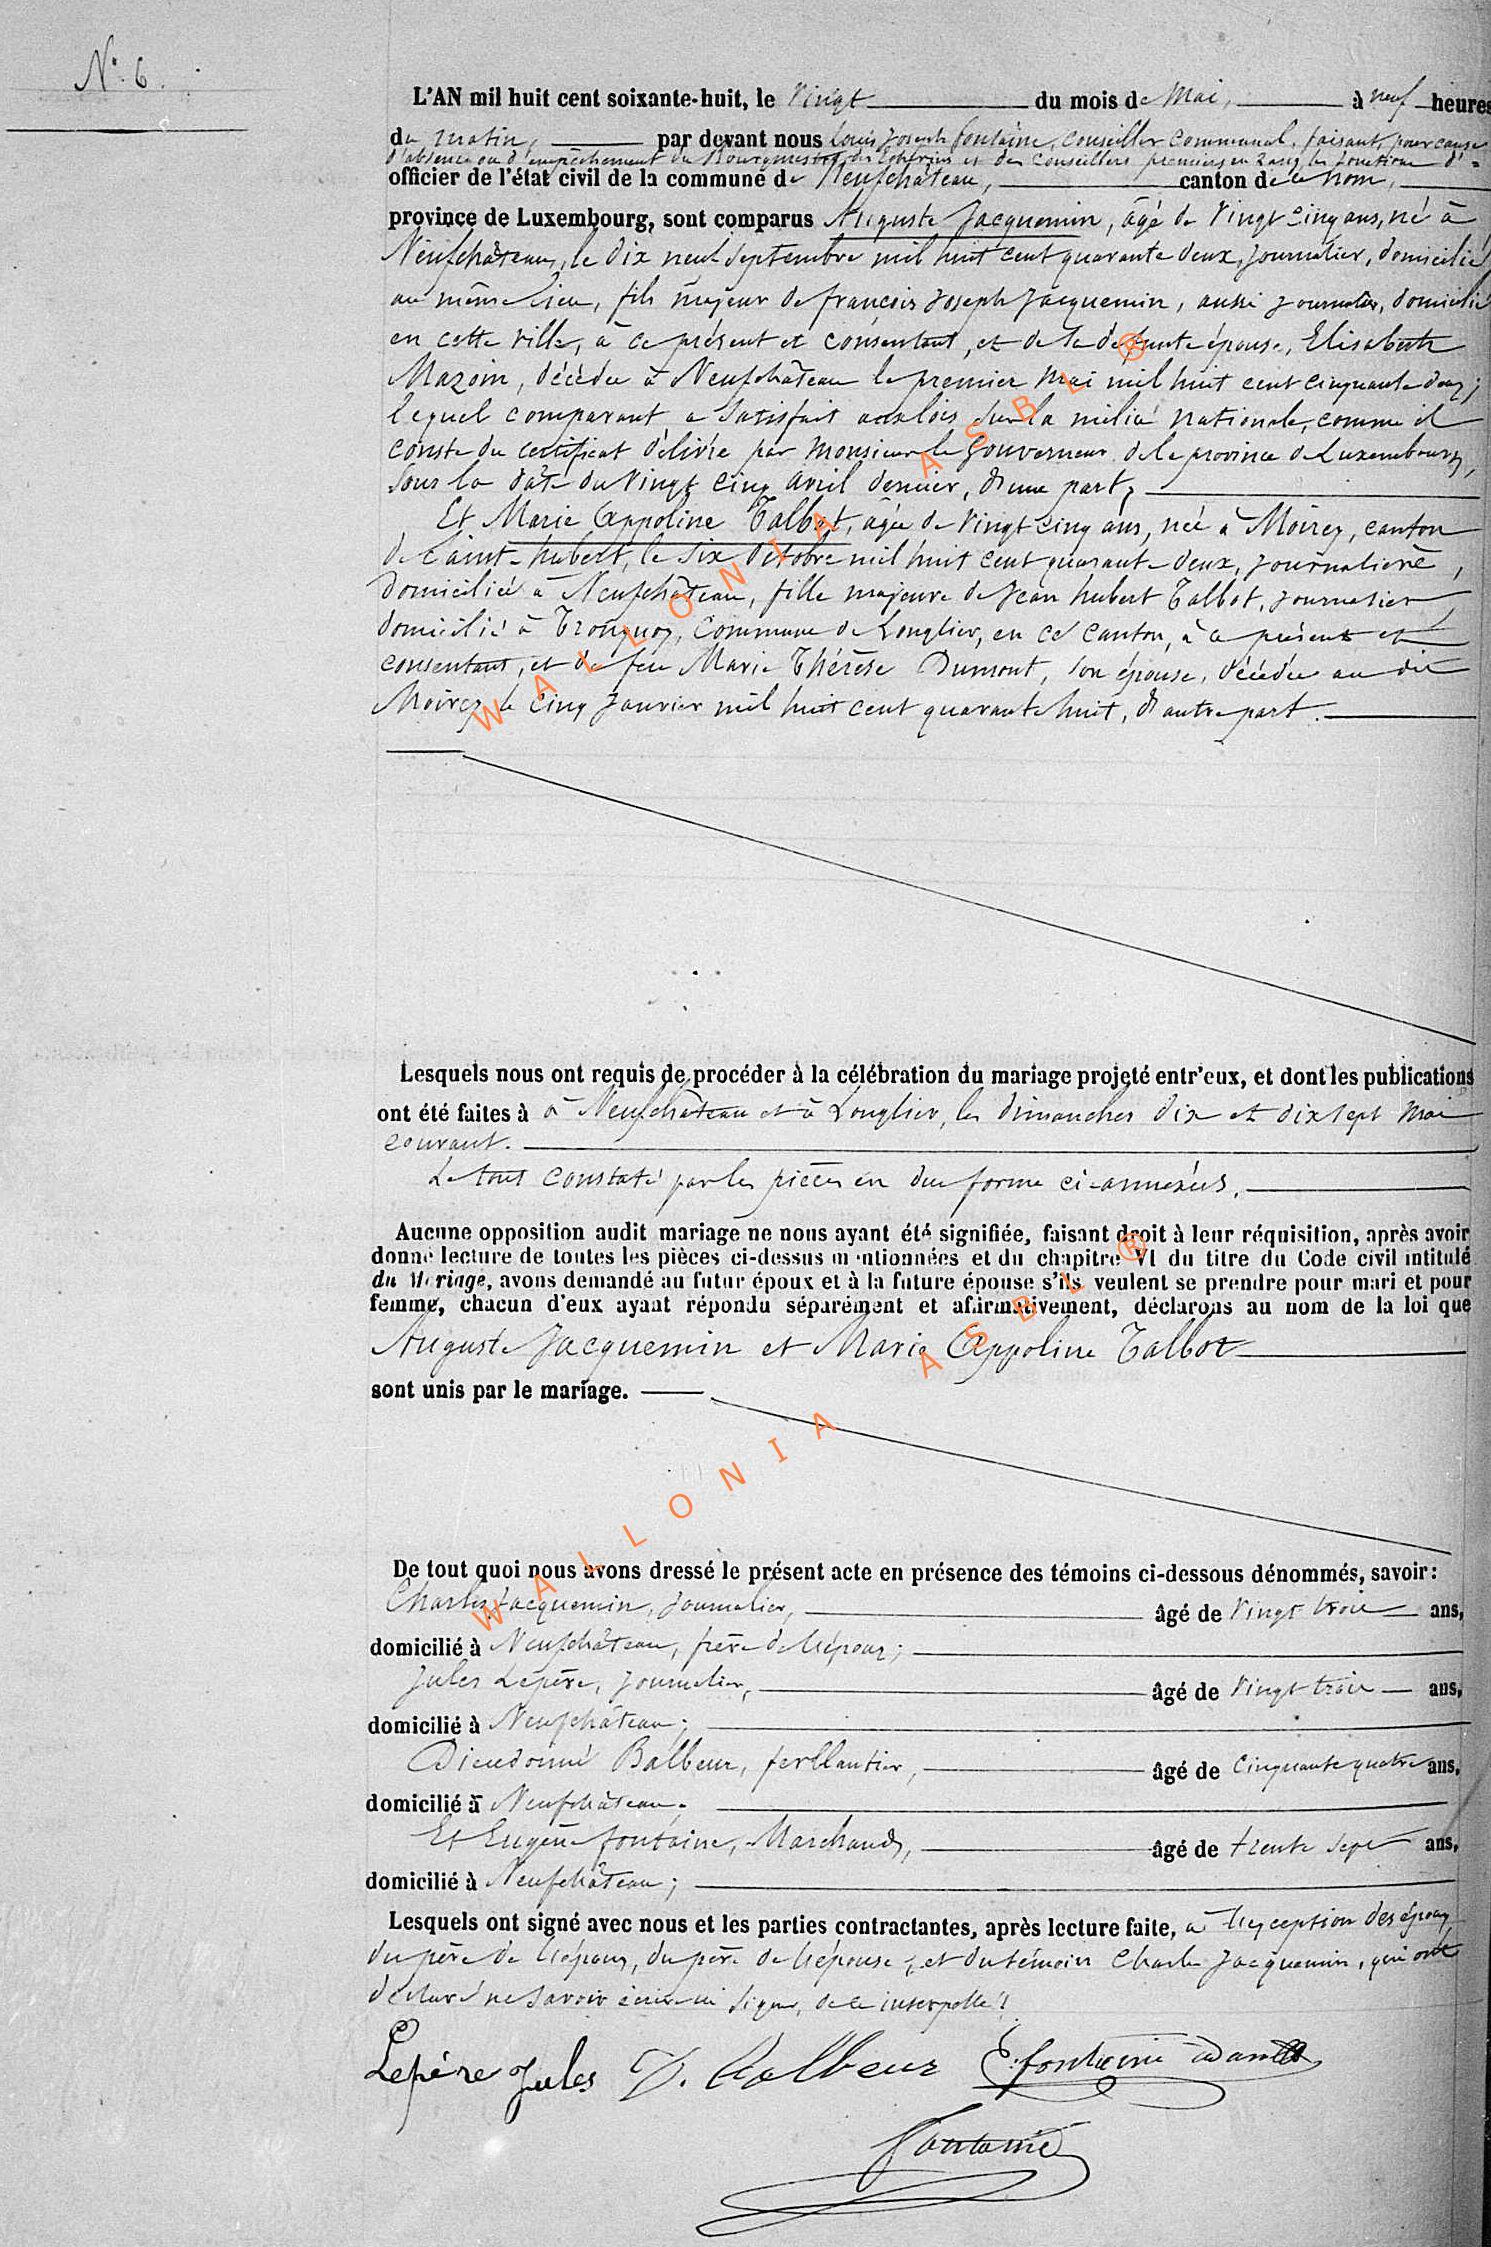 N° 6.
L'AN mil huit cent soixante-huit, le vingt du mois de Mai, à neuf heures
du matin, par devant nous Louis Joseph fontaine, Conseiller Communal, faisant, pour cause
d'absence ou d'empêchement du Bourgmestre, des Echevins et des Conseillers premiers en rang les fonctions d'=
officier de l'état civil de la commune de Neufchâteau, canton de ce nom,
province de Luxembourg, sont comparus Auguste Jacquemin, âgé de vingt cinq ans, né à
Neufchâteau, le dix neuf septembre mil huit cent quarante deux, journalier, domicilié
au même lieu, fils majeur de françois Joseph Jacquemin, aussi journalier, domicilié
en cette ville, à ce présent et consentant, et de sa défunte épouse, Elisabeth
Mazoin, décédée à Neufchâteau le premier Mai mil huit cent cinquante deux;
lequel comparant a satisfait aux lois sur la milice nationale, comme il
conste du certificat délivré par Monsieur le Gouverneur de la province de Luxembourg,
sous la date du vingt cinq avril dernier, d'une part,
Et Marie Appoline Talbot, âgée de vingt cinq ans, née à Moircy, canton
de Saint-hubert, le six Octobre mil huit cent quarante deux, journalière,
domiciliée à Neufchâteau, fille majeure de Jean hubert Talbot, journalier,
domicilié à Tronquoy, commune de Longlier, en ce canton, à ce présent et
consentant, et de feu Marie Thérèse Dumont, son épouse, décédée au dit
Moircy le cinq Janvier mil huit cent quarante huit, d'autre part.
Lesquels nous ont requis de procéder à la célébration du mariage projeté entr'eux, et dont les publications
ont été faites à à Neufchâteau et à Longlier, les dimanches dix et dix sept Mai
courant.
Le tout constaté par les pièces en due forme ci-annexées.
Aucune opposition audit mariage ne nous ayant été signifiée, faisant droit à leur réquisition, après avoir
donné lecture de toutes les pièces ci-dessus mentionnées et du chapitre VI du titre du Code civil intitulé
du Mariage, avons demandé au futur époux et à la future épouse s'ils veulent se prendre pour mari et pour
femme, chacun d'eux ayant répondu séparément et affirmativement, déclarons au nom de la loi que
Auguste Jacquemin et Marie Appoline Talbot
sont unis par le mariage.
De tout quoi nous avons dressé le présent acte en présence des témoins ci-dessous dénommés, savoir:
Charles Jacquemin, journalier, âgé de vingt trois ans,
domicilié à Neufchâteau, frère de l'époux;
Jules Lepère, journalier, âgé de vingt trois ans,
domicilié à Neufchâteau;
Dieudonné Balbeur, ferblantier, âgé de cinquante quatre ans,
domicilié à Neufchâteau;
Et Eugène fontaine, Marchand, âgé de trente sept ans,
domicilié à Neufchâteau;
Lesquels ont signé avec nous et les parties contractantes, après lecture faite, à l'exception des époux,
du père de l'époux, du père de l'épouse, et du témoin Charles Jacquemin, qui ont
déclaré ne savoir écrire ni signer, de ce interpellés.
Lepére Jules D. Balbeur E. fontaine
fontaine
WALLONIA ASBL ®
WALLONIA ASBL ®